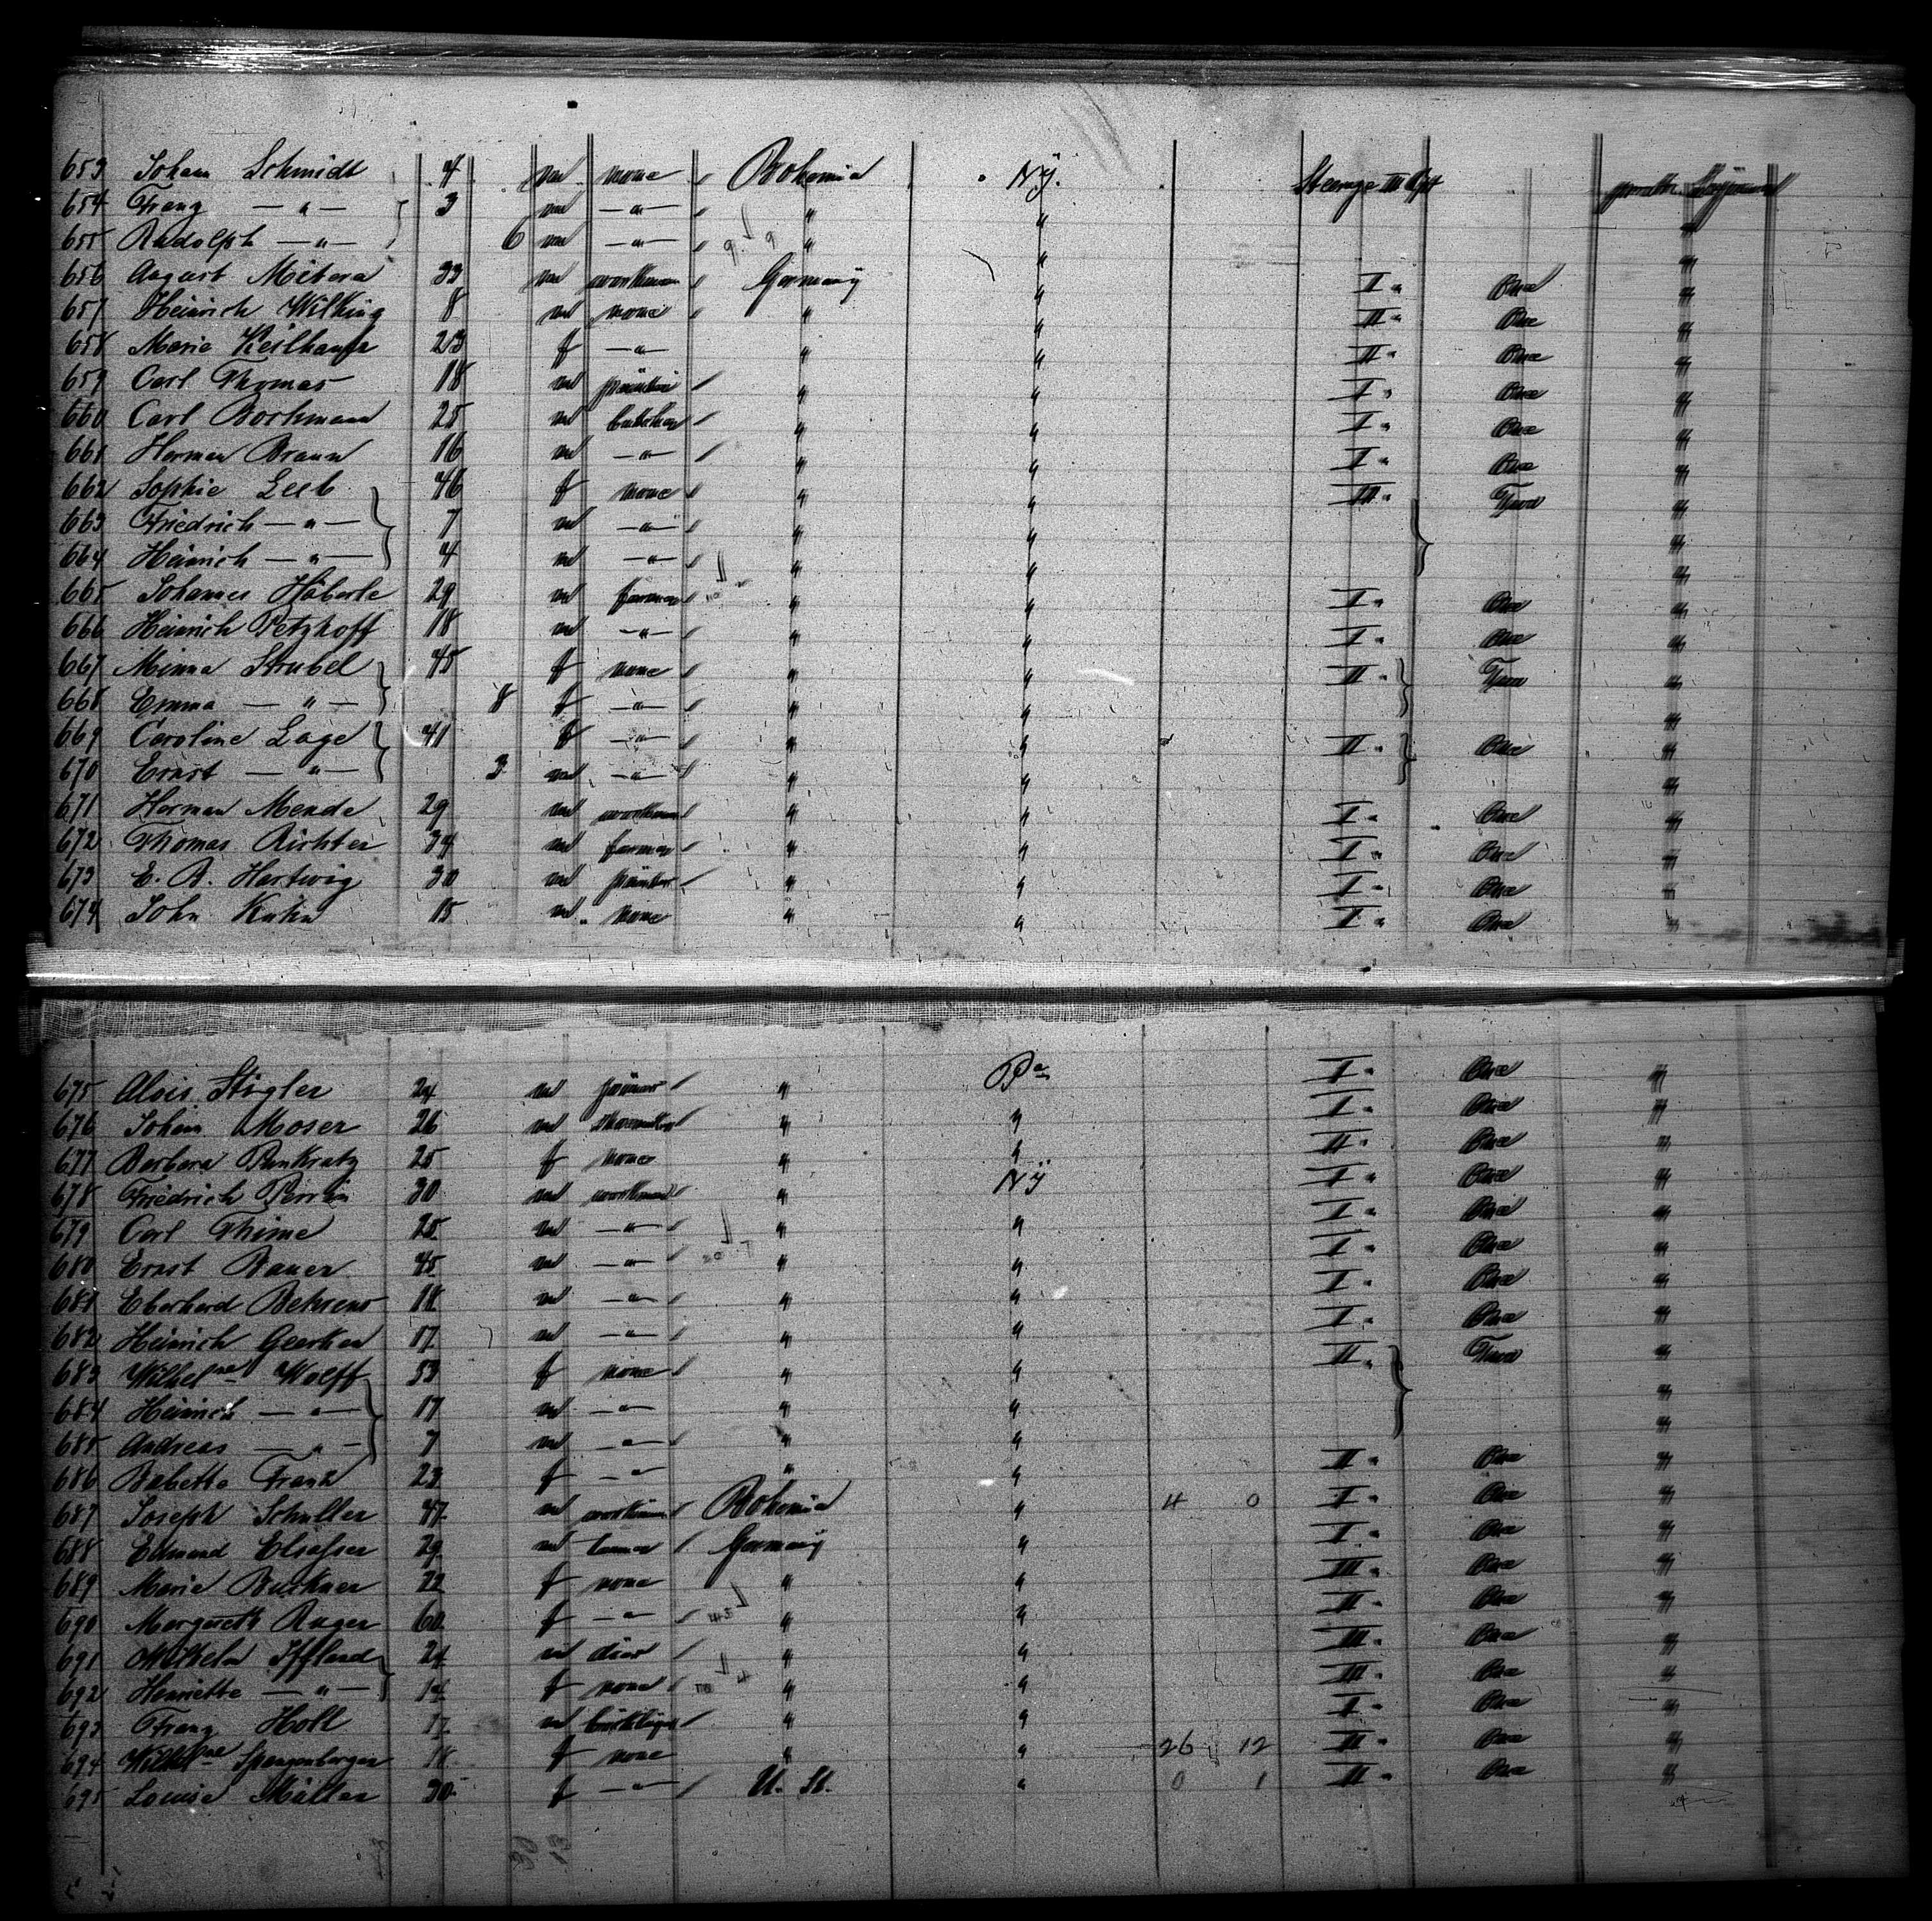 653 Johann Schmidt 4 m none Bohemia N.Y. Steerage III
654 Franz — " — 3 m — " — " "
655 Rudolph — " — 6 m — " — " "
656 August Mitera 33 m workman Germany " I " One "
657 Heinrich Wilking 8 m none " " II " One "
658 Marie Keilhauer 23 f — " — " " II " One "
659 Carl Thomas 18 m " " I " One "
660 Carl Borkmann 25 m butcher " " I " One "
661 Herman Braun 16 m — " — " " I " One "
662 Sophie Leeb 46 f none " " III "
663 Friedrich — " — 7 m — " — " " "
664 Heinrich — " — 4 m — " — " " "
665 Johannes Häberle 29 m farmer " " I " One "
666 Heinrich Petzhoff 18 m — " — " " I " One "
667 Minna Strubel 45 f none " " II "
668 Emma — " — 8 f — " — " " "
669 Caroline Lage 41 f — " — " " II " One "
670 Ernst — " — 3 m — " — " " "
671 Herman Mende 29 m workman " " I " One "
672 Thomas Richter 34 m farmer " " I " One "
673 E. B. Hartwig 30 m painter " " I " One "
674 John Kuhn 15 m none " " I " One "
675 Alois Stigler 24 m " Pa I " One "
676 Johann Moser 26 m " " I " One "
677 Barbara Pankratz 25 f none " " II " One "
678 Friedrich Perrin 30 m workman " NY I " One "
679 Carl Thime 25 m — " — " " I " One "
680 Ernst Bauer 45 m — " — " " I " One "
681 Eberhard Behrens 18 m — " — " " I " One "
682 Heinrich Geerken 17 m — " — " " I " One "
683 Wilhelne Wolff 53 f none " " II "
684 Heinrich — " — 17 m — " — " " "
685 Andreas — " — 7 m — " — " " "
686 Babette Frank 23 f — " — " " II " One "
687 Joseph Schuller 47 m workman Bohemia " 4 0 I " One "
688 Edmund Elsasser 29 m Germany " I " One "
689 Marie Buckner 22 f none " " III " One "
690 Margareth Rager 60 f — " — " " II " One "
691 Wilhelm Iffland 24 m " " III " One "
692 Henriette — " — 14 f none " " III " One "
693 Franz Holl 17 m " " I " One "
694 Wilhelne Spangenberger 18 f none " " 26 12 II " One "
695 Louise Müller 30 f — " — U. St. " 0 1 II " One "